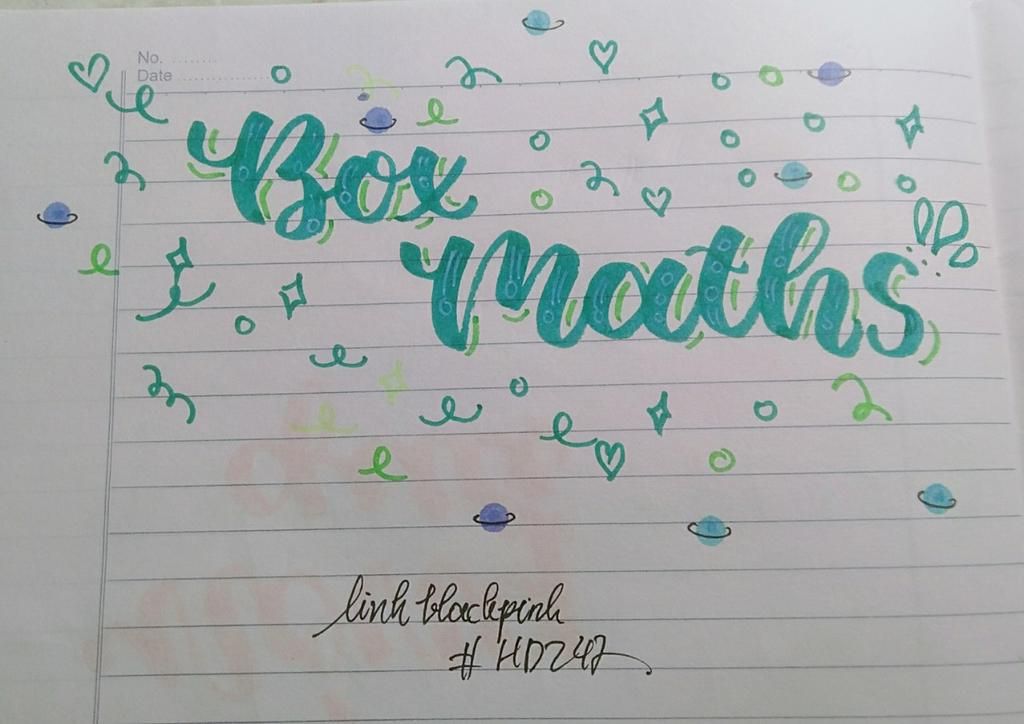 No. .........
Date ...................
Box
Maths
linh blackpink
# HD247